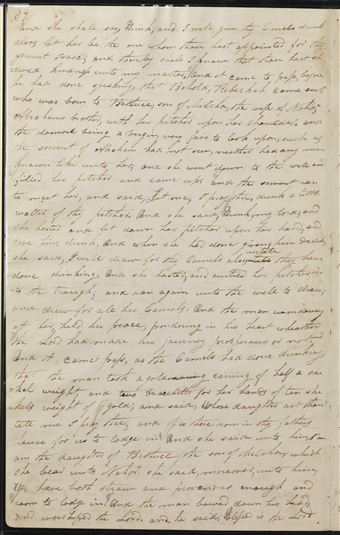 And she shall say, Drink, and I will give thy Camels drink
also; let her be the one whom thou hast appointed for thy
servant Isaac; and thereby shall I know that thou hast sh
ewed kindness unto my master, And it came to pass, before
he had done speaking, that Behold, Rebekah came out
who was born to Bethuel, son of Milchah, the wife of Nahor
Abrahams brother, with her pitcher upon her shoulder; and
the damsel being a virgin, very fair to look upon, such as
the servant of Abraham had not seen, neither had any man
known like unto her; and she went down to the well and
filled her pitcher and came up; and the servant ran
to meet her, and said, Let me, I pray thee, drink a little
water of thy pitcher. And she said, Drink, my lord; and
she hasted and let down her pitcher upon her hand, and
gave him drink. And when she had done giving him drink,
she said, I will draw for thy Camels also, until they have
done drinking. And she hasted, and emptied her pitcher in
to the trough, and ran again unto the well to draw,
and drew for all his Camels. And the man wondering
at her, held his peace, pondering in his heart whether
the Lord had made his journey prosperous or not,
And it came to pass, as the Camels had done drinking
that the man took a golden earring of half a she
kel weight, and two bracelets for her hands of ten she
kels weight of gold; and said, Whose daughter art thou?
tell me I pray thee; and is there room in thy fathers
house for us to lodge in? And she said unto him, I
am the daughter of Bethuel, the son of Milchah, which
she bear unto Nahor. She said, moreover, unto him,
We have both straw and provender enough and
room to lodge in; And the man bowed down his head,
and worshiped the Lord. And he said, Blessed is the Lord